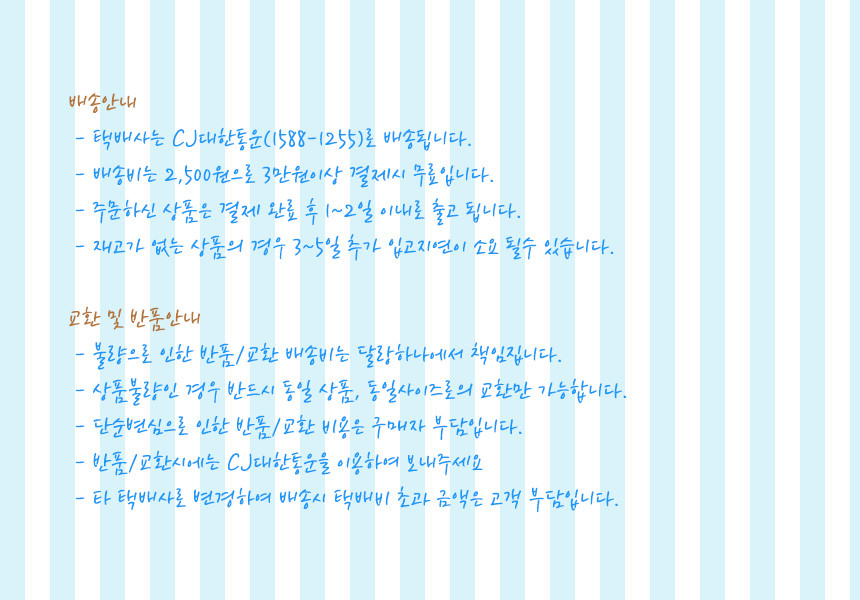 배송안내
- 택배사는 CJ대한통운(1588-1255)로 배송됩니다.
- 배송비는 2,500원으로 3만원이상 결제시 무료입니다.
- 주문하신 상품은 결제 완료 후 1~2일 이내로 출고 됩니다.
- 재고가 없는 상품의 경우 3~5일 추가 입고지연이 소요 될수 있습니다.
교환 및 반품안내
- 불량으로 인한 반품/교환 배송비는 달랑하나에서 책임집니다.
- 상품불량인 경우 반드시 동일 상품, 동일사이즈로의 교환만 가능합니다.
- 단순변심으로 인한 반품/교환 비용은 구매자 부담입니다.
- 반품/교환시에는 CJ대한통운을 이용하여 보내주세요
- 타 택배사로 변경하여 배송시 택배비 초과 금액은 고객 부담입니다.